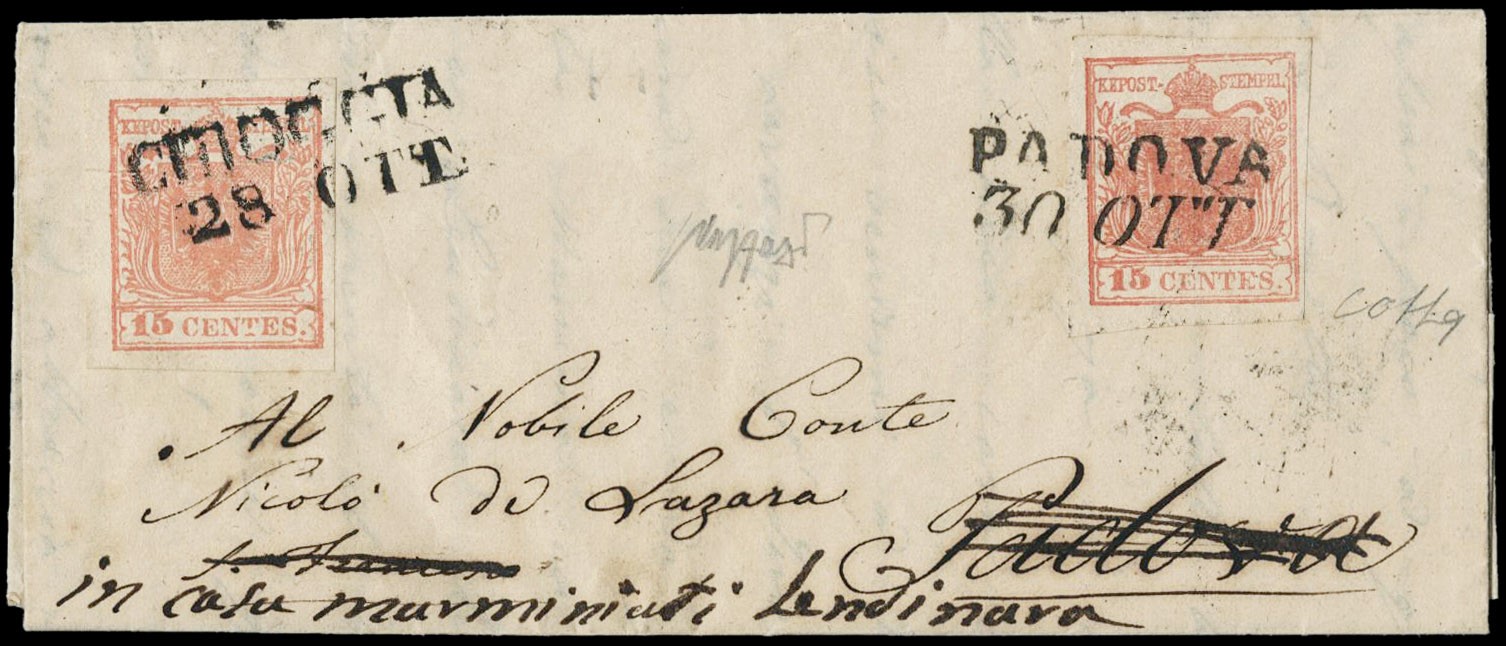 KKPOST-STEMPEL
CHIOGGIA
28 OTT.
15 CENTES.
KKPOST-STEMPEL
PADOVA
30 OTT.
15 CENTES.
Al Nobile Conte
Nicolò de Lazara
Padova
in casa marminiati Lendinara